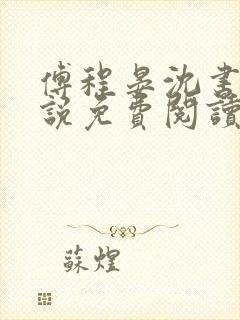 傅程晏沈書
說免費閱讀
蘇煌